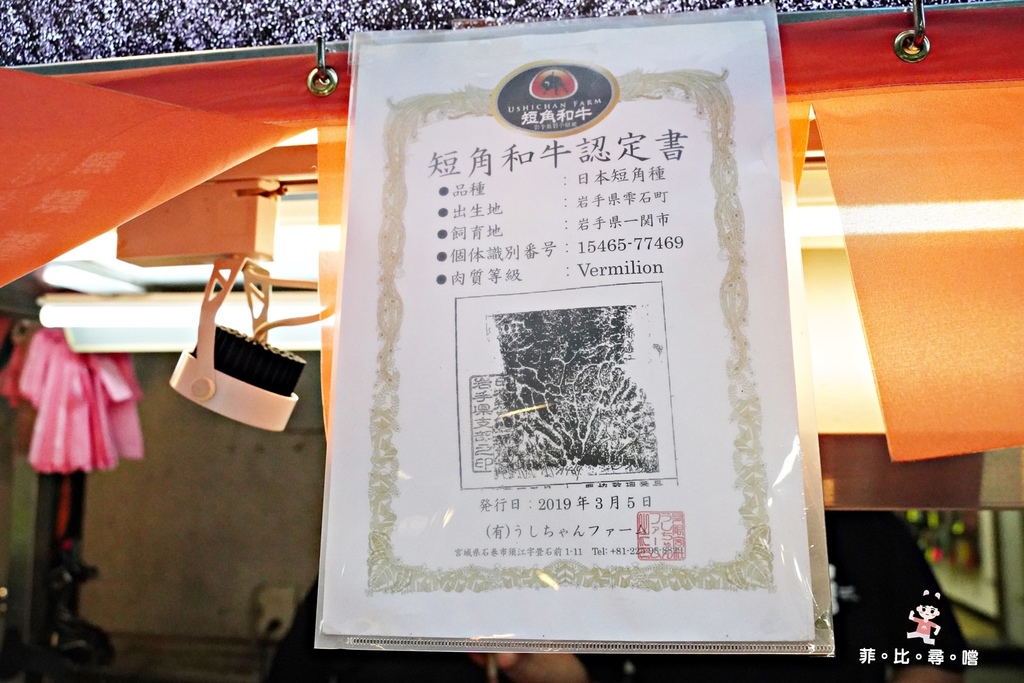 USHICHAN FARM
短角和牛
短角和牛認定書
●品種 : 日本短角種
●出生地 : 岩手県雫石町
●飼育地 : 岩手県一関市
●個体識別番号 : 15465-77469
●肉質等級 : Vermilion
岩手県支部之印
発行日：2019年3月5日
(有)うしちゃんファーム
宮城県石巻市須江字畳石前1-11 Tel: +81-225-98-
菲。比。尋。嚐